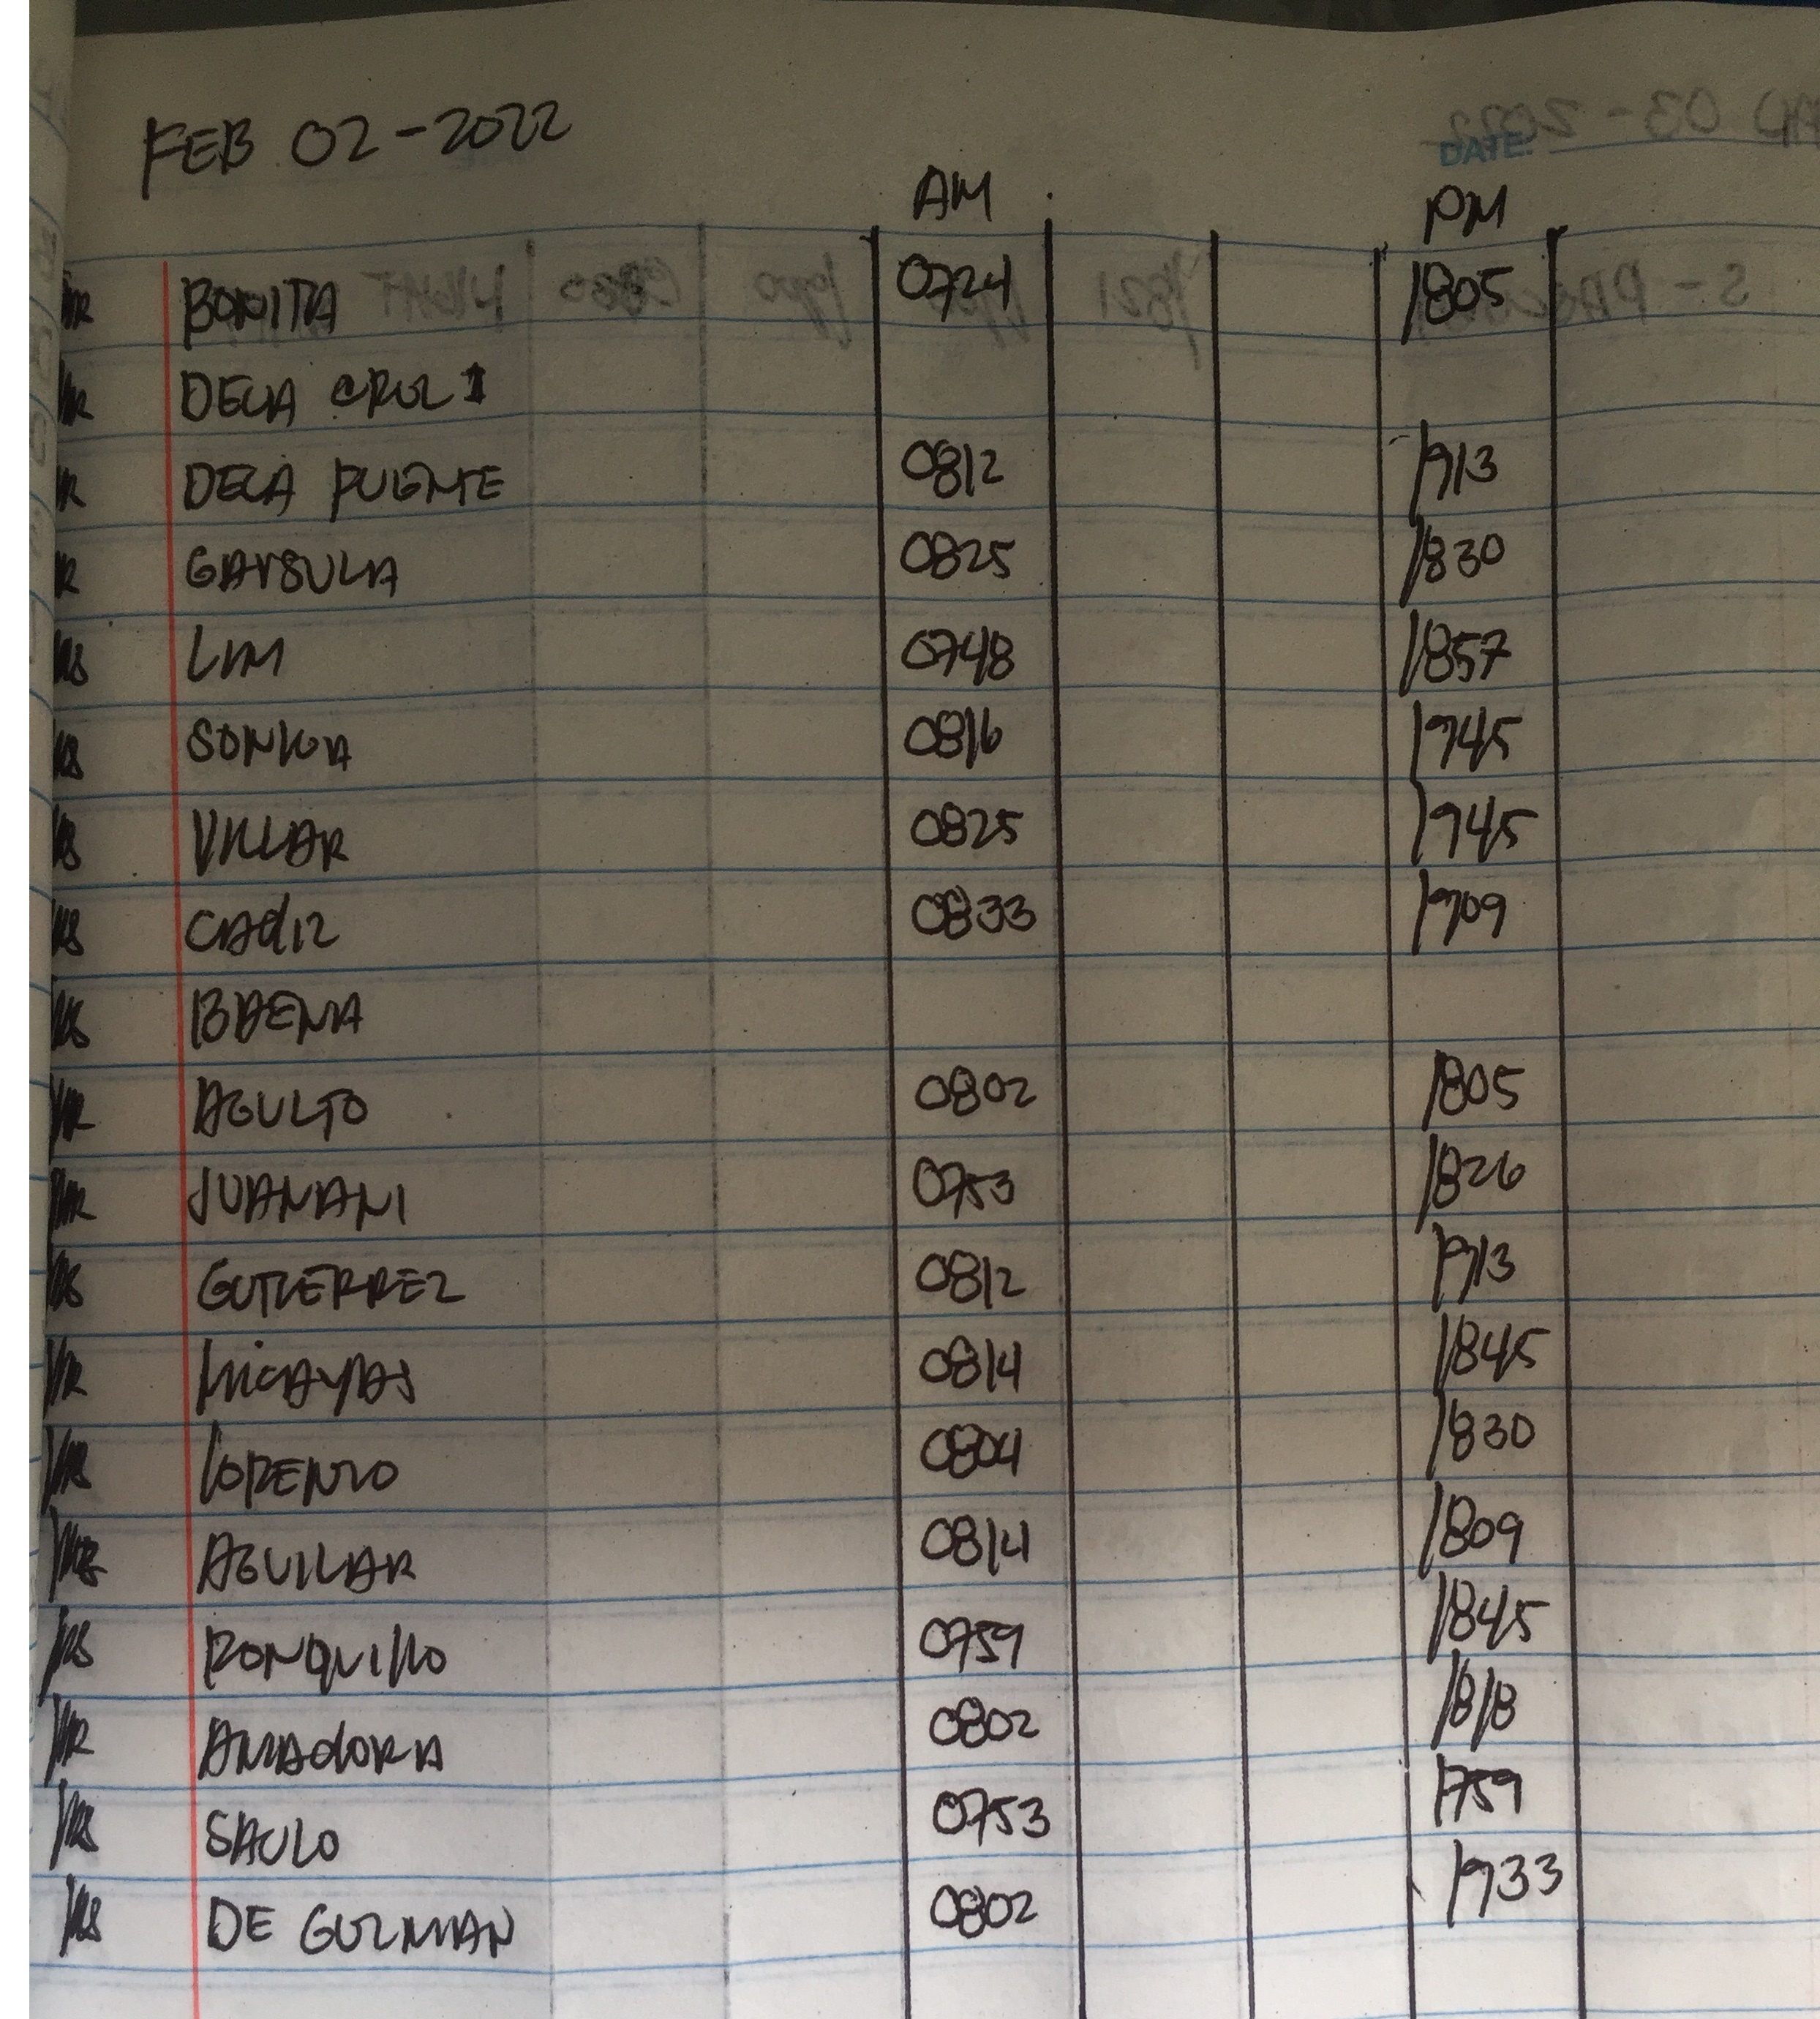 FEB 02-2022
DATE:
AM PM
MR BONITA 0724 1805
MR DELA CRUZ 1
MR DELA PUENTE 0812 1913
MR GAYSULA 0825 1830
MS LIM 0748 1857
MS SONKUA 0816 1945
MS VILLAR 0825 1945
MS CADIZ 0833 1909
MS BAENA
MR AGULTO 0802 1805
MR JUANANI 0753 1826
MS GUTIERREZ 0812 1913
MR 0814 1845
MS LORENZO 0804 1830
AGUILAR 0814 1809
MS RONQUILLO 0759 1845
MR AMADORA 0802 1818
MS SAULO 0753 1759
MS DE GUZMAN 0802 1933